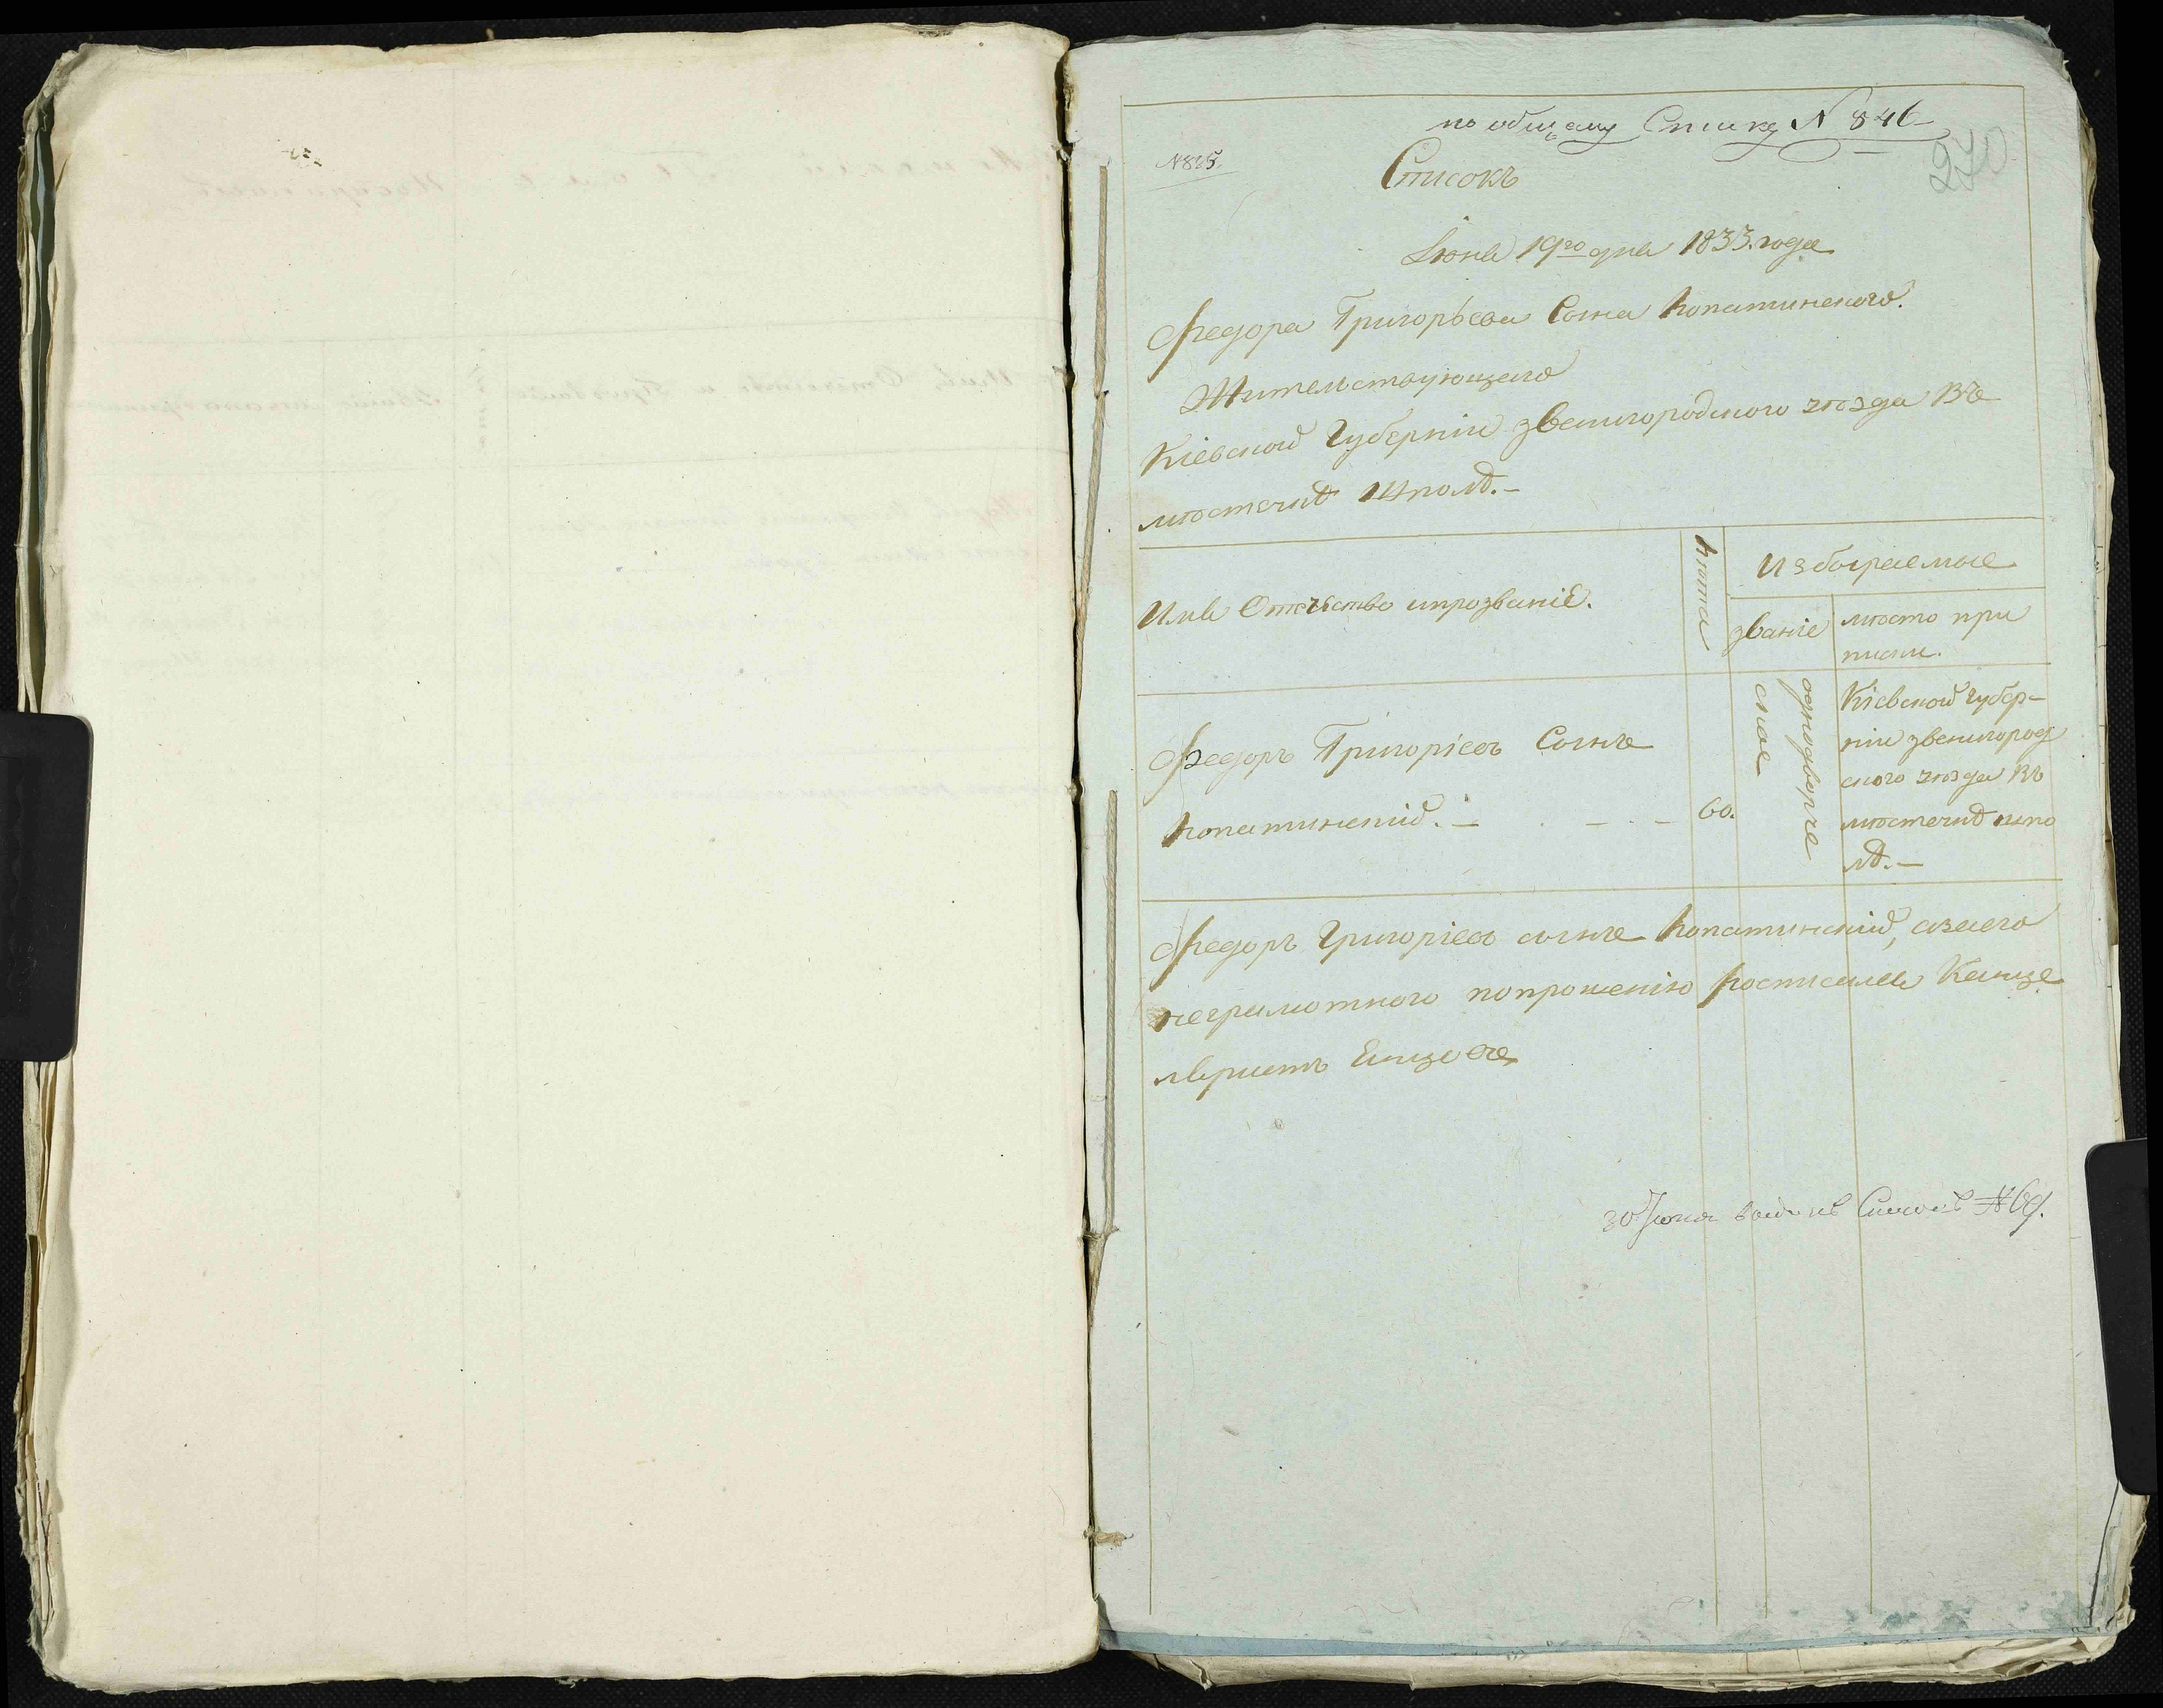 по общему Списку N 846
N 825.
270
Списокъ
Іюня 19го дня 1833. года
Федора Григорьева Сына Лопатинского.
Жительствующего
Кіевской Губерніи Звенигородского уѣзда Въ
мѣстечкѣ Шполѣ.-
Имя Отечество и прозваніе.
Лѣта
Избираемое
званіе
мѣсто при
писки.
Федоръ Григоріевъ Сынъ
Лопатинскій. -
60.
однодворче
ское
Кіевской губер-
ніи Звенигород
ского уѣзда Въ
мѣстечкѣ шпо
лѣ.-
Федоръ Григоріевъ сынъ Лопатинскій, а за его
неграмотного по прошенію росписался Канце
ляристъ
30 Іюня Списокъ N 69.